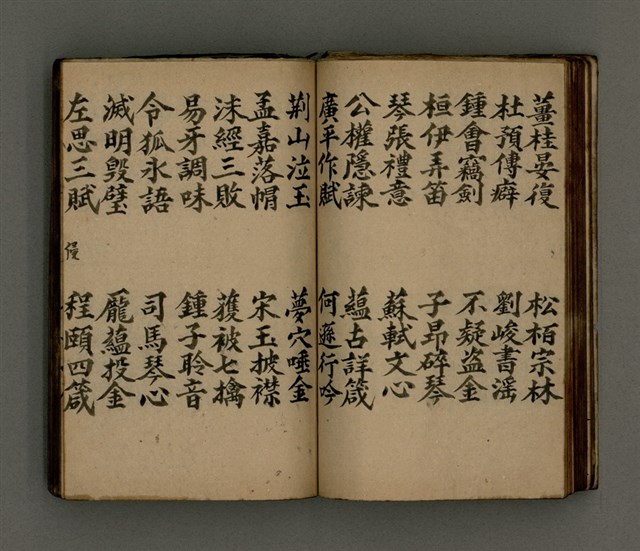 薑桂晏復
松栢宗林
杜預傳癖
劉峻書滛
鍾會竊劍
不疑盗金
桓伊弄笛
子昂碎琴
琴張禮意
蘇軾文心
公權隱諫
蘊古詳箴
廣平作賦
何遜行吟
荆山泣玉
夢穴唾金
孟嘉落帽
宋玉披襟
沫經三敗
獲被七擒
易牙調味
鍾子聆音
令狐氷語
司馬琴心
滅明毀璧
龎蘊投金
左思三賦
程頤四箴